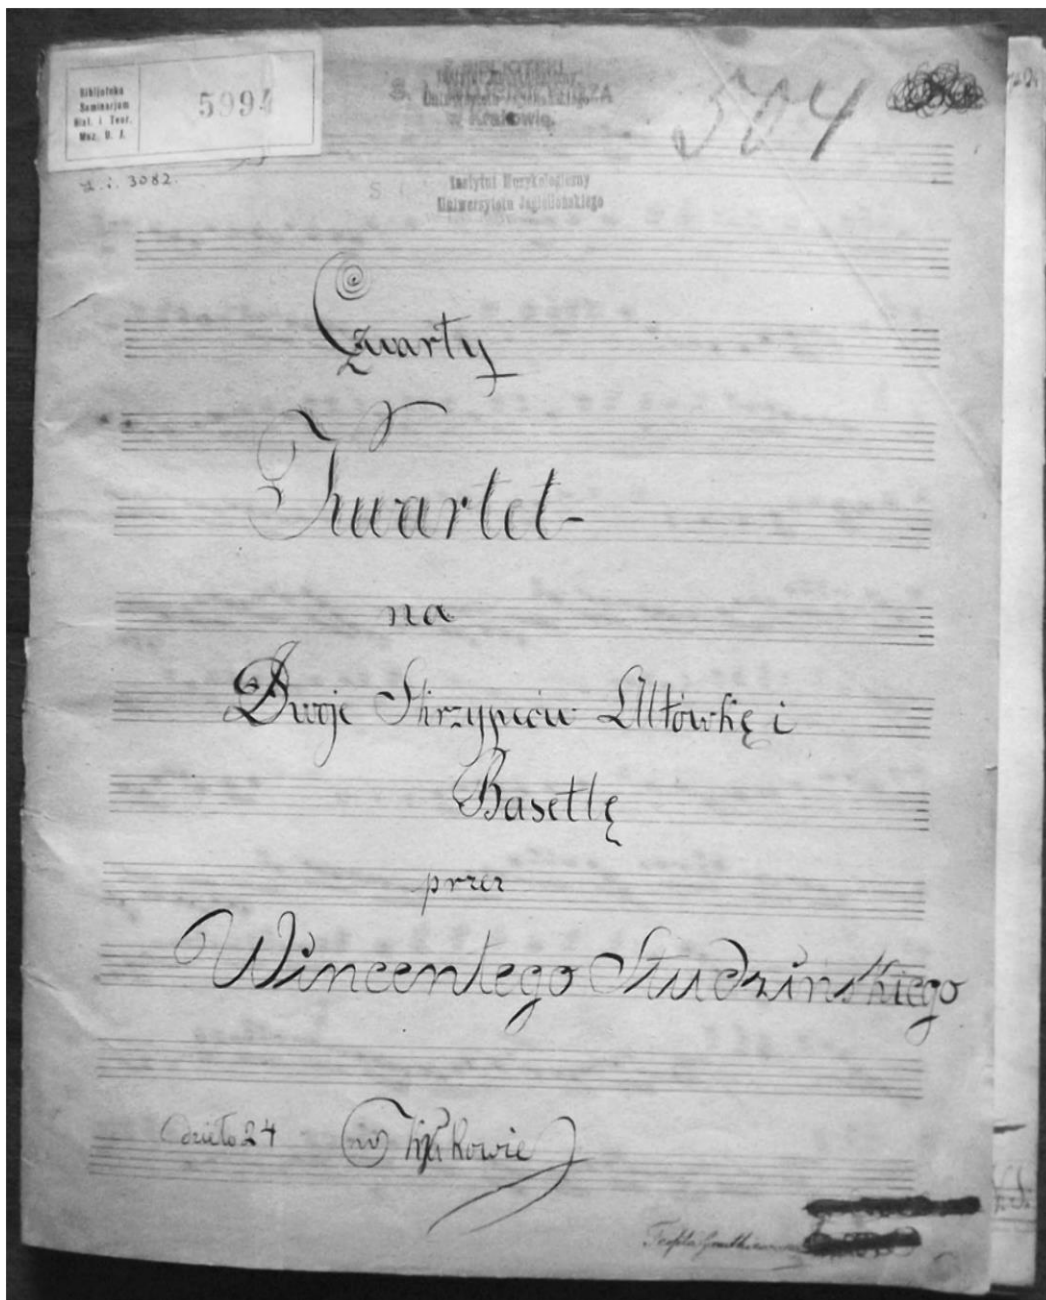 Bibljoteka
Seminarjum
Hist. i Teor.
Muz. U. J.
5994
3082.
w Krakowie.
504
Instytut Muzykologiczny
Uniwersytetu Jagiellońskiego
Czwarty
Kwartet
na
Dwoje Skrzypiców Altówkę i
Basetlę
przez
Wincentego Studzińskiego
dzieło 24 (w) Krakowie